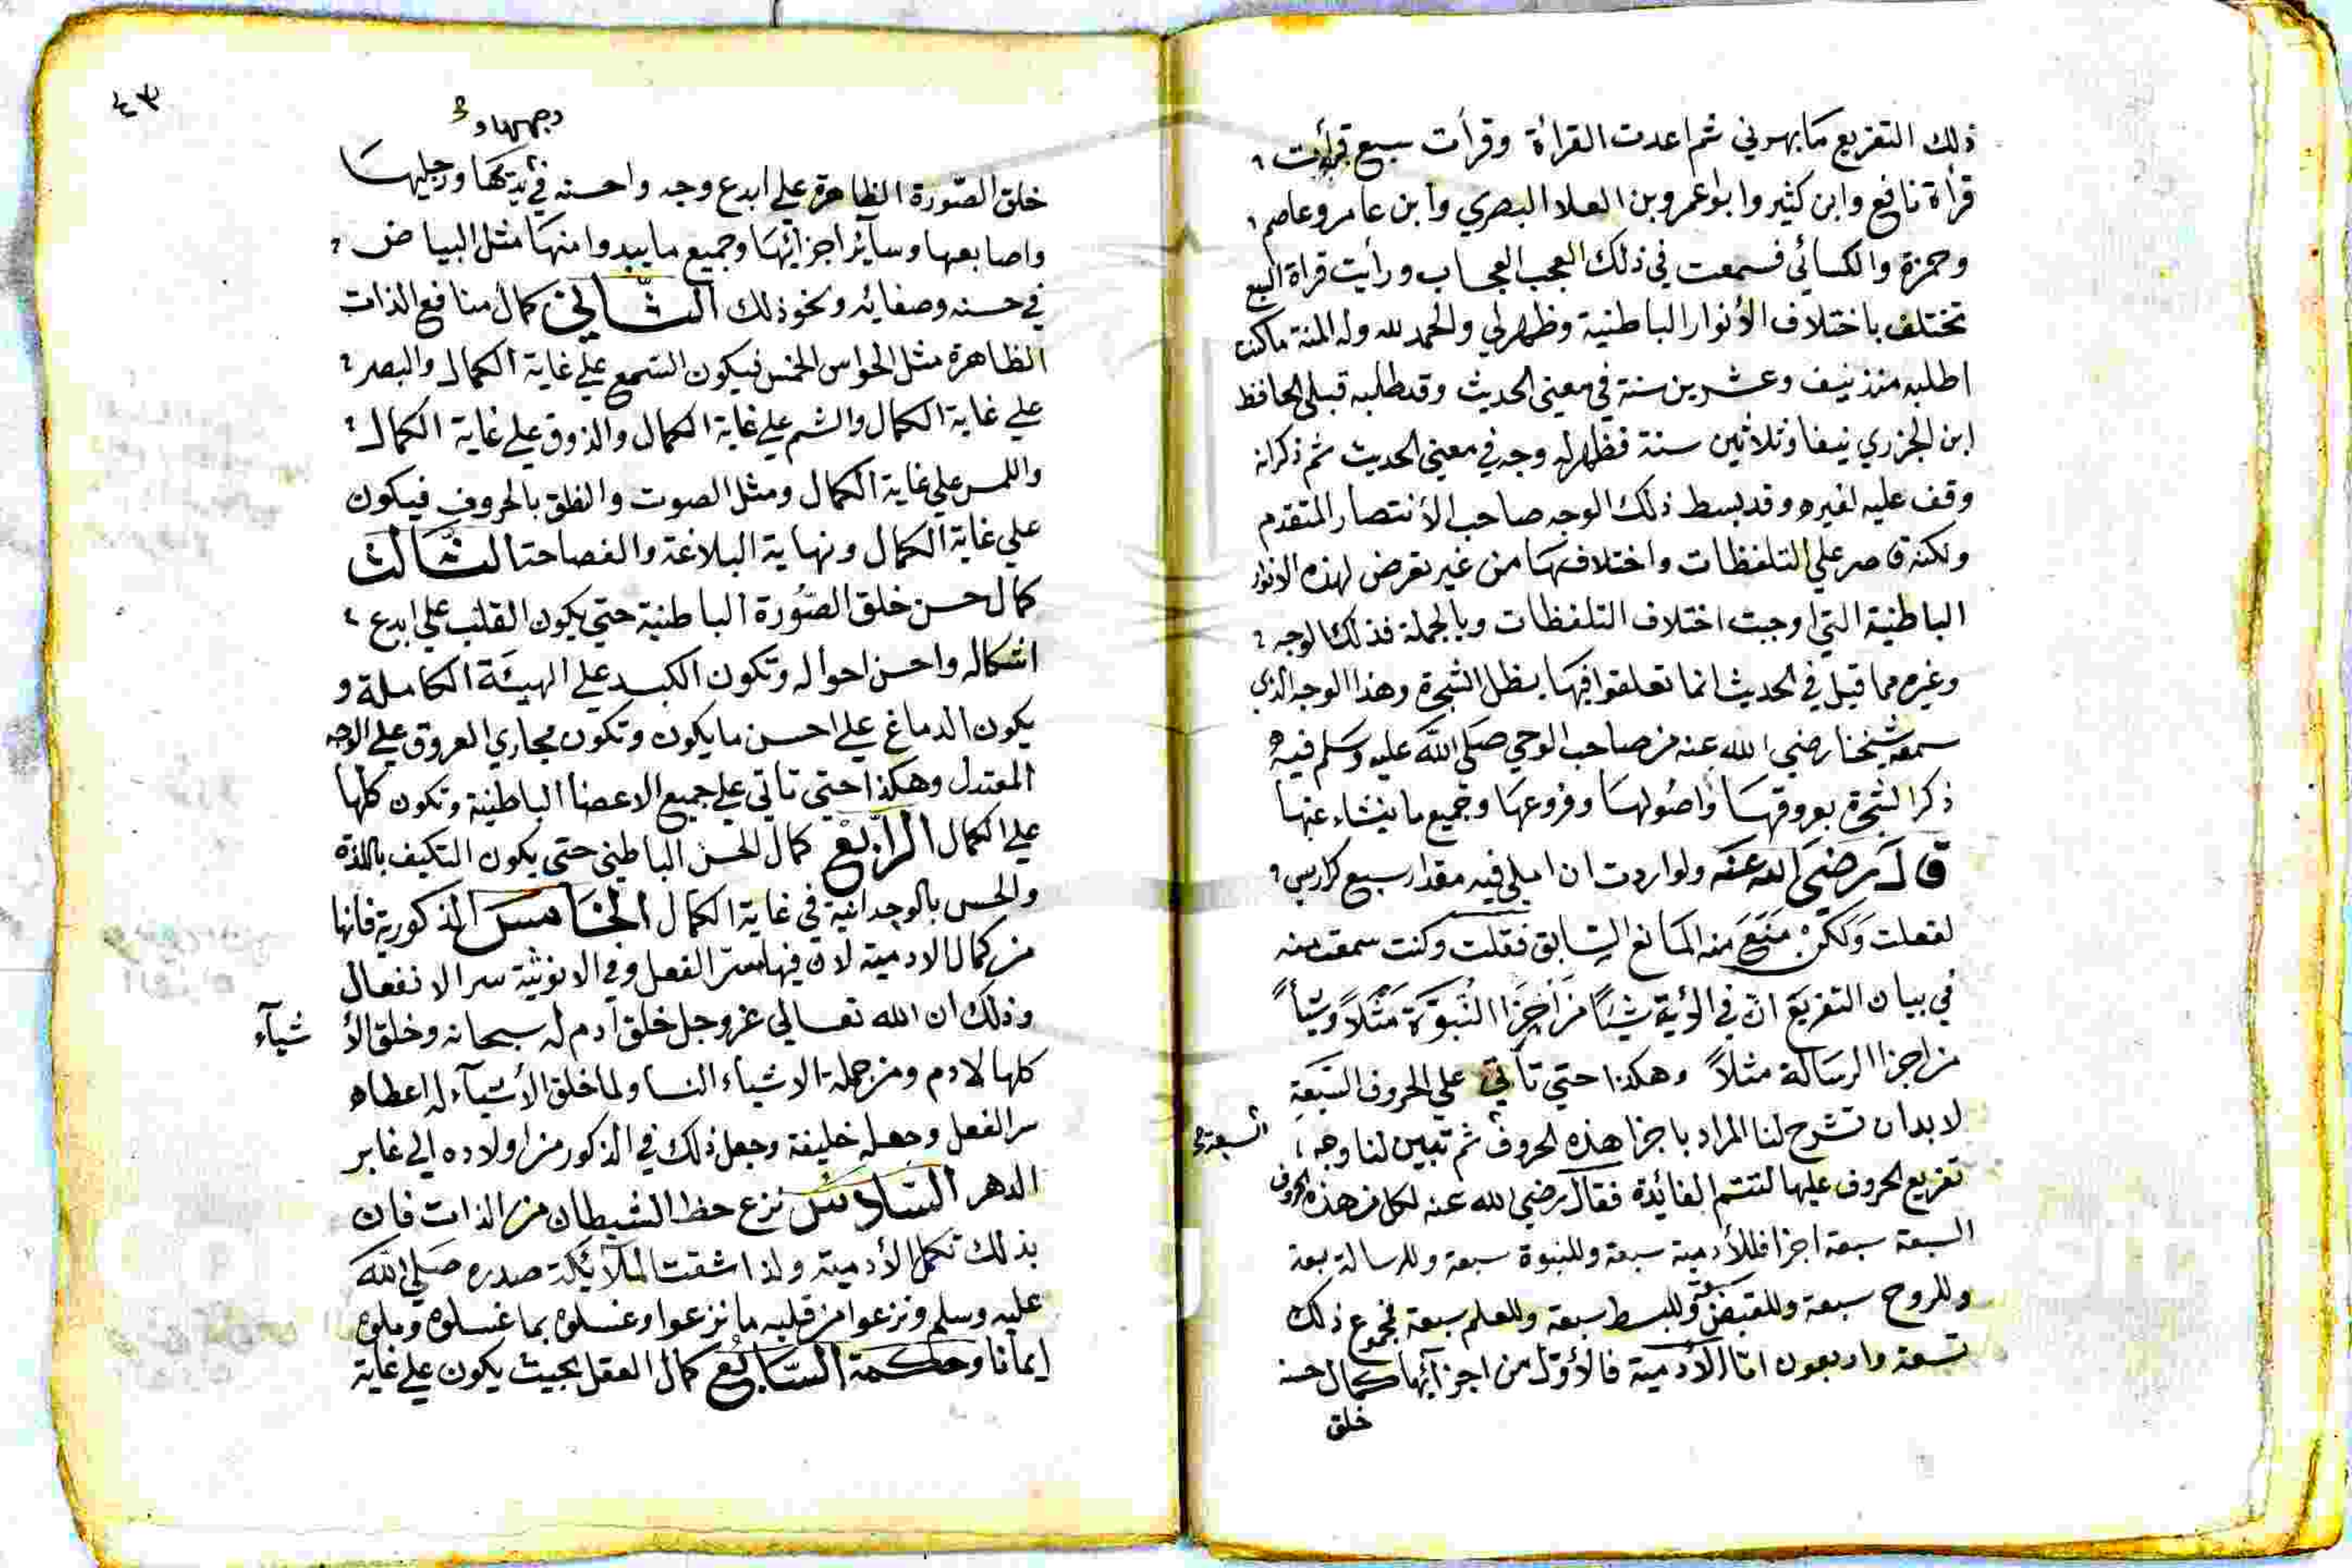 ذلك التفريع مايهوني ثم اعدت القراة وقرأت سبع قرأت
قرأة نافع وابن كثير وابو عمرو بن العلا البصري وابن عامر وعاصم
وحمزة والكسائي فسمعت في ذلك العجب العجاب ورأيت قراة السبع
تختلف باختلاف الأنوار الباطنية وظهر لي والحمد لله وله المنة ما كنت
اطلبه منذ نيف وعشرين سنة في معني الحديث وقد طلبه قبلي الحافظ
ابن الجزري نيفا وثلاثين سنة فظهر له وجه في معني الحديث ثم ذكر انه
وقف عليه لغيره وقد بسط ذلك الوجه صاحب الأنتصار المتقدم
ولكنه قاصر علي التلفظات واختلافها من غير تعرض لهذه الانوار
الباطنية التي اوجبت اختلاف التلفظات وبالجملة فذلك الوجه
وغيره مما قيل في الحديث انما تعلقوا فيها بظل الشجرة وهذا الوجه الذي
سمعه شيخنا رضي الله عنه من صاحب الوحي صلي الله عليه وسلم فيه
ذكر الشجرة بعروقها واصولها وفروعها وجميع ما ينشاء عنها
قال رضي الله عنه ولو اردت ان املي فيه مقدار سبع كراريس
لفعلت ولكن منع منه المانع السابق فقلت وكنت سمعت منه
في بيان التفريع ان في الرؤية شيئا من اجزا النبوة مثلا وشيأ
من اجزا الرسالة مثلا وهكذا حتي تأتي علي الحروف السبعة
لا بد ان تشرح لنا المراد باجزا هذه الحروف ثم تبين لنا وجه
السبعة
تفريع الحروف عليها لتتم الفائدة فقال رضي الله عنه لكل من هذه الحروف
السبعة سبعة اجزا فللأدمية سبعة وللنبوة سبعة وللرسالة سبعة
وللروح سبعة وللقبض سبعة وللبسط سبعة وللعلم سبعة فمجموع ذلك
تسعة واربعون اما الأدمية فالأول من اجزآئها كمال حسن
خلق
٤٣
وجهها و
خلق الصورة الظاهرة علي ابدع وجه واحسنه في يديها ورجليها
واصابعها وسائر اجزائها وجميع ما يبدوا منها مثل البياض
في حسنه وصفائه ونحو ذلك الثاني كمال منافع الذات
الظاهرة مثل الحواس الخمس فيكون السمع علي غاية الكمال والبصر
علي غاية الكمال والشم علي غاية الكمال والذوق علي غاية الكمال
واللمس علي غاية الكمال ومثل الصوت والنطق بالحروف فيكون
علي غاية الكمال ونهاية البلاغة والفصاحة الثالث
كمال حسن خلق الصورة الباطنية حتي يكون القلب علي ابدع
اشكاله واحسن احواله وتكون الكبد علي الهيئة الكاملة و
يكون الدماغ علي احسن ما يكون وتكون مجاري العروق علي الوجه
المعتدل وهكذا حتي تاتي علي جميع الاعضا الباطنية وتكون كلها
علي الكمال الرابع كمال الحسن الباطني حتي يكون التكيف باللذة
والحس بالوجدانية في غاية الكمال الخامس الذكورية فانها
من كمال الادمية لان فيها سر الفعل وفي الانوثية سر الانفعال
وذلك ان الله تعالي عز وجل خلق آدم له سبحانه وخلق الأ شيآء
كلها لادم ومن جملة الاشياء النسا ولما خلق الأشيآء له اعطاه
سر الفعل وجعله خليفة وجعل ذلك في الذكور من اولاده الي غابر
الدهر السادس نزع حظ الشيطان من الذات فان
بذلك تكمل الأدمية ولذا شقت الملائكة صدره صلي الله
عليه وسلم ونزعوا من قلبه ما نزعوا وغسلوه بما غسلوه وملوه
ايمانا وحكمة السابع كمال العقل بحيث يكون علي غاية